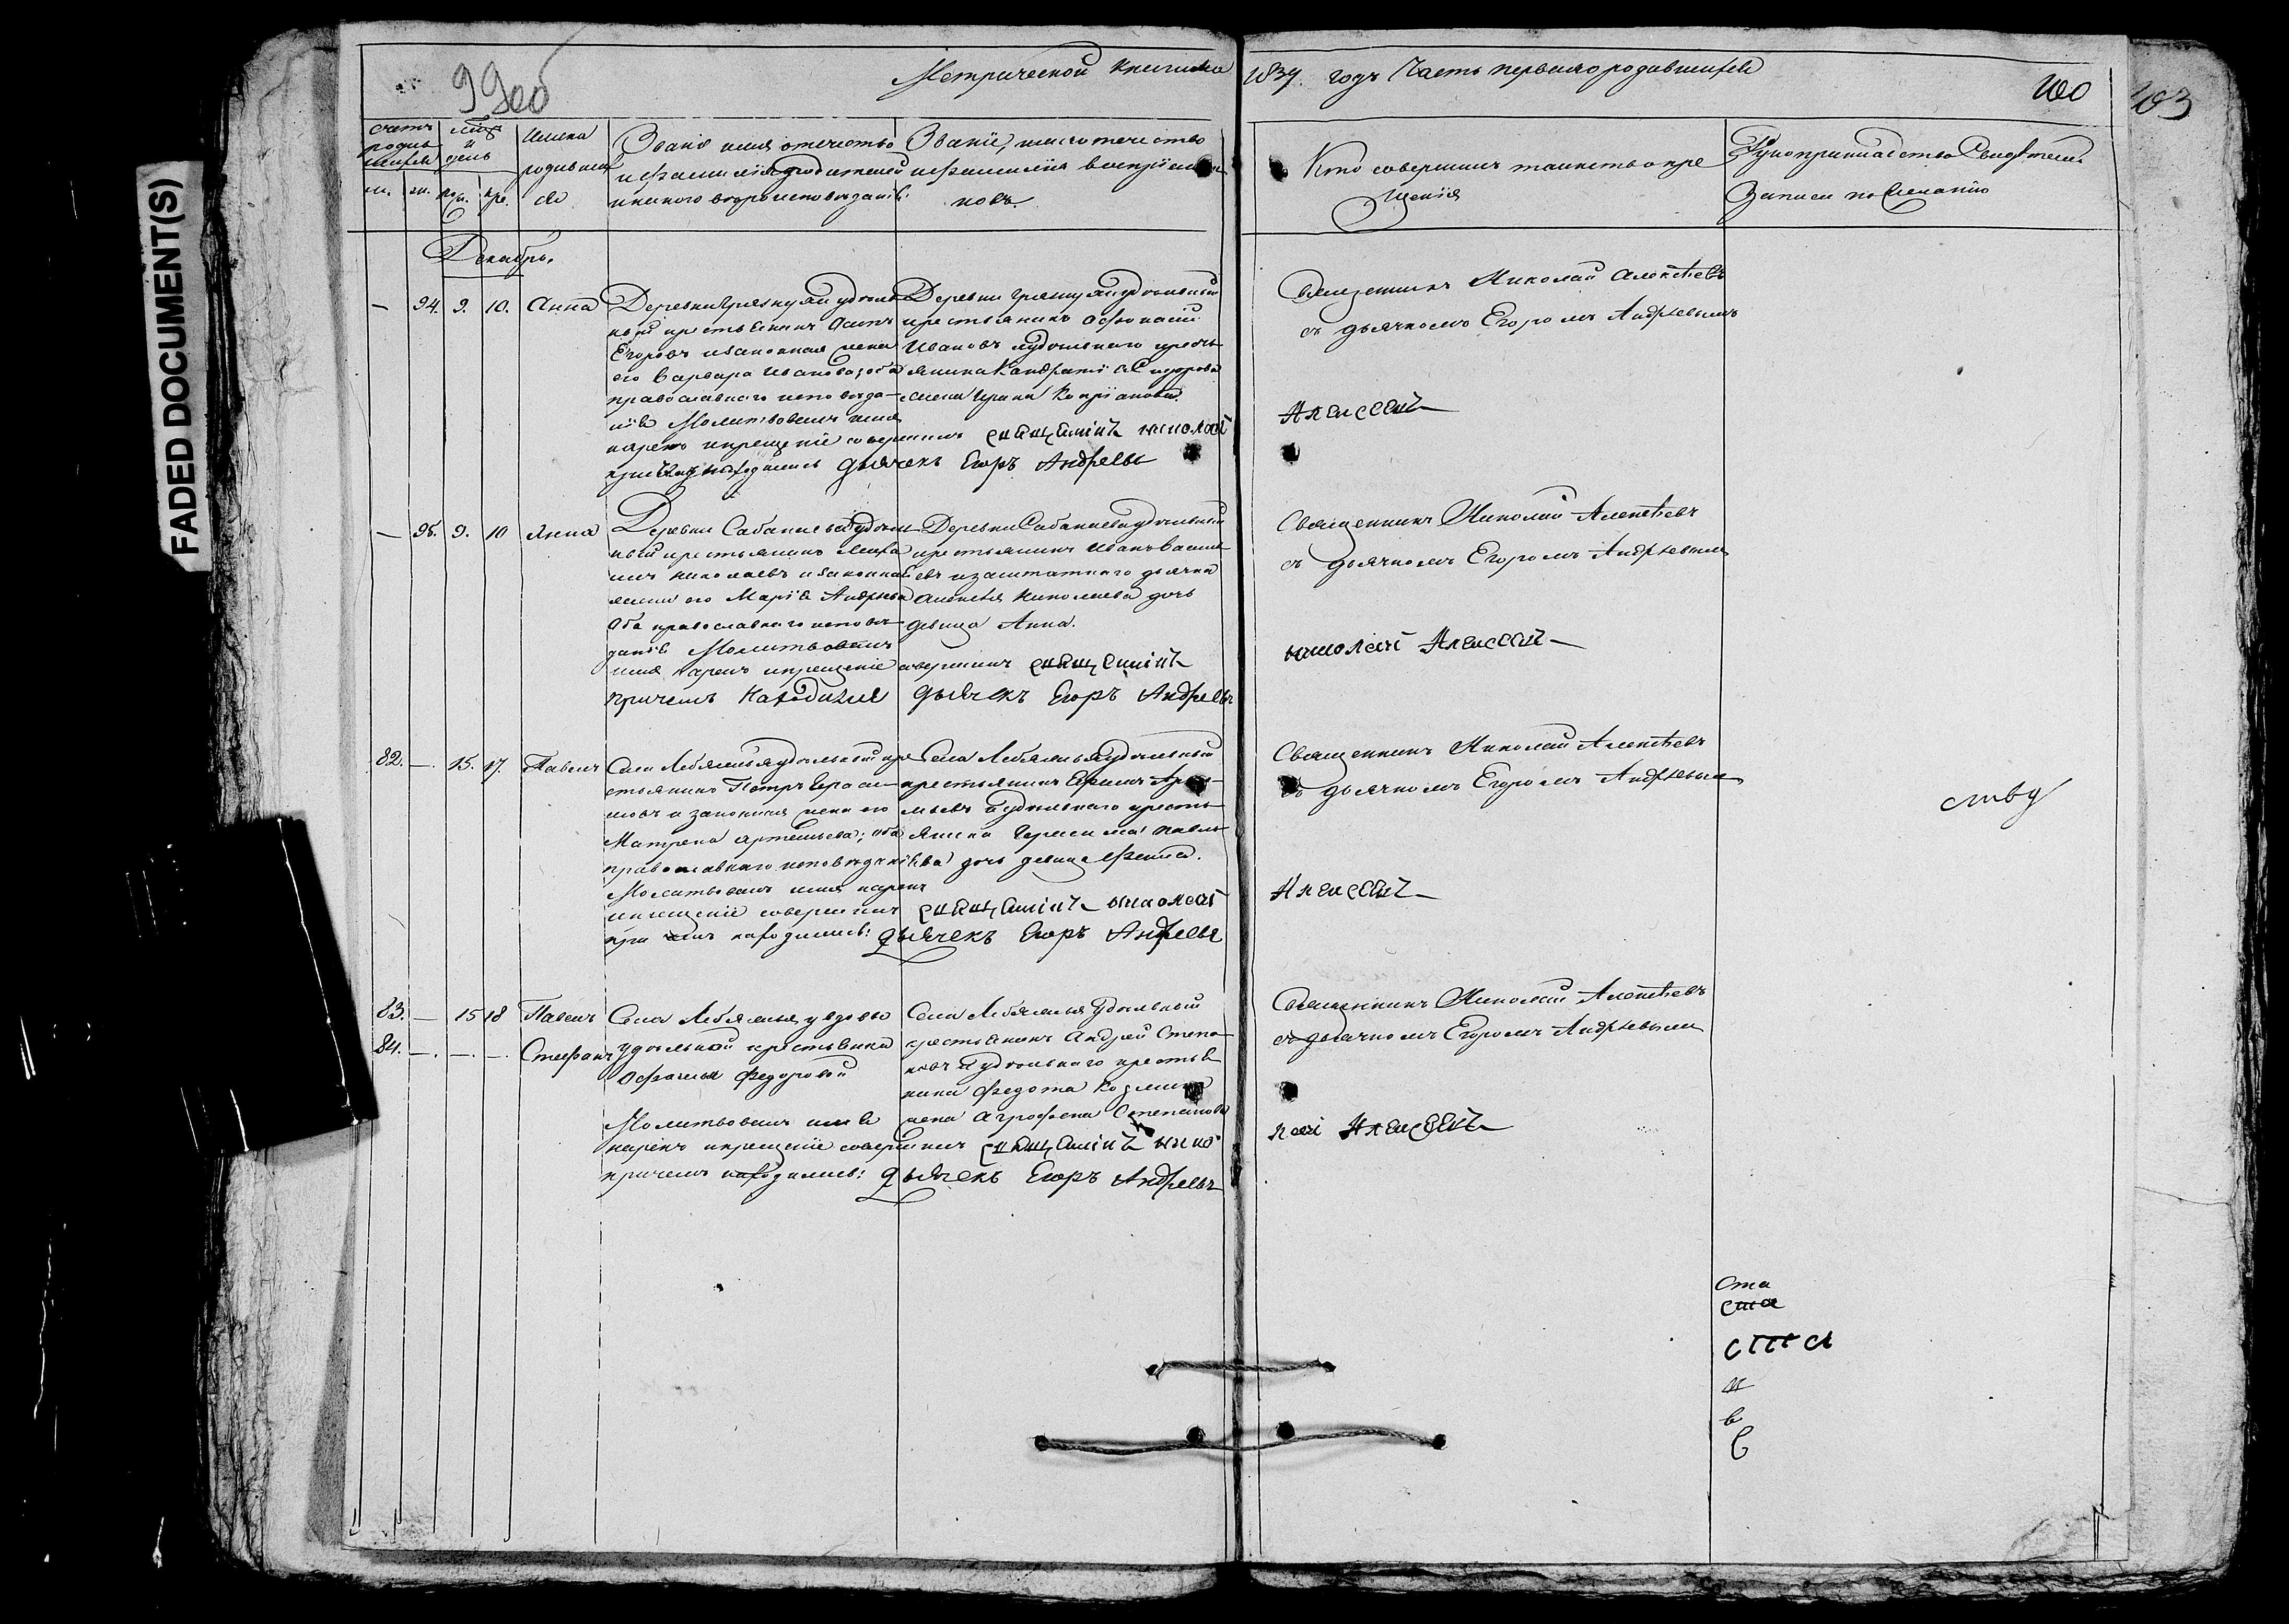 FADED DOCUMENT(S)
99об
Метрической книги на 1839 годъ Часть первая о родившихся
100
103
счетъ родив шихся
м. ж.
мц и день
рож. кре.
Имена родивших ся
Званiе имя отечество
и фамилiя родителей
и какого вероисповеданiя.
Званiе, имя отечество
и фамилiя воспрiемни
ковъ.
Кто совершилъ таинство кре
щенiя
Рукоприкладство Свидетелей
Записи по желанiю
Декабрь.
— 94. 9. 10. Анна
Деревни удель
ной крестьянинъ Осипъ
Егоровъ и законная жена
его Варвара Иванова; оба
православного исповеда
нiя Молитвовалъ имя
нарекъ и крещенiе совершилъ священникъ николай
при находились дьячекъ Егоръ Андреевъ
Деревни удельный
крестьянинъ Афонасiй
Ивановъ и удельнаго кресть
янина Кондратiя Сидорова
жена Ирина Копрiанова.
Священникъ Николай Алексѣевъ
съ дьячкомъ Егоромъ Андрѣевымъ
Алексеевъ
— 95. 9. 10 Анна
Деревни Сабакаева удель
ный крестьянинъ Миха
илъ Николаевъ и законная
жена его Марiя Андрѣева
Оба православнаго исповѣ
данiя Молитвовалъ
имя нарекъ и крещенiе совершилъ священникъ
Причемъ находился дьячекъ Егоръ Андреевъ
Деревни Сабакаева удельный
крестьянинъ Иванъ Василь
евъ и заштатнаго дьячка
Алексѣя Николаева дочь
девица Анна.
Священникъ Николай Алексѣевъ
съ дьячкомъ Егоромъ Андрѣевымъ
николай Алексеевъ
82. — 15. 17. Павелъ
Села Лебяжья удельный кре
стьянинъ Петръ Ераси
мовъ и законная жена его
Матрена Артемьева; оба
православнаго исповѣданiя
Молитвовалъ имя нарекъ
и крещенiе совершилъ священникъ николай
при чемъ находились: дьячекъ Егоръ Андреевъ
Села Лебяжья удельный
крестьянинъ Ефимъ Арте
мьевъ и удельнаго кресть
янина Герасима Павло
ва дочь девица Фекла.
Священникъ Николай Алексѣевъ
съ дьячкомъ Егоромъ Андрѣевымъ
Алексеевъ
83. — 15 18 Павелъ
84. — — — Стефанъ
Села Лебяжья у вдовы
удельной крестьянки
Офимьи Федоровой
Молитвовалъ имя
нарекъ и крещенiе совершилъ священникъ нико
причемъ находились: дьячекъ Егоръ Андреевъ
Села Лебяжья Удельный
крестьянинъ Андрей Степа
новъ и удельнаго крестья
нина Федота Козмина
жена Агрофена Степанова
Священникъ Николай Алексѣевъ
съ дьячкомъ Егоромъ Андрѣевымъ
лай Алексеевъ
Ста
ста
ста